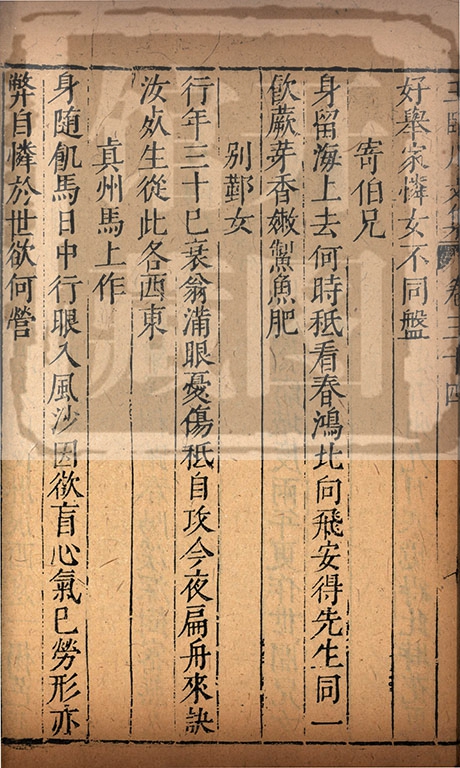 卷三十四
好舉家憐女不同盤
寄伯兄
身留海上去何時秖看春鴻北向飛安得先生同一
飲蕨芽香嫩鮆魚肥
別鄞女
行年三十巳衰翁滿眼憂傷秖自攻今夜扁舟來訣
汝㱠生從此各西東
真州馬上作
身隨飢馬日中行眼入風沙因欲盲心氣巳勞形亦
弊自憐於世欲何營